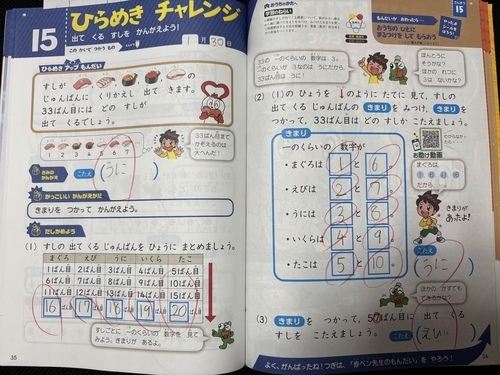 15
ひらめき チャレンジ
出て くる すしを かんがえよう!
この かいで つかう もの
月30日
ひらめき アップ もんだい
すしが
じゅんばんに くりかえし 出て きます。
33ばん目には どの すしが
出て くるでしょう。
1 2 3 4 5 6 7
33ばん目まで
かぞえるのは
大へんだ!
こたえ (うに)
かっこいい かんがえかた
きまりを つかって かんがえよう。
たしかめよう
(1) すしの 出て くる じゅんばんを ひょうに まとめましょう。
まぐろ えび うに いくら たこ
1ばん目 2ばん目 3ばん目 4ばん目 5ばん目
6ばん目 7ばん目 8ばん目 9ばん目 10ばん目
11ばん目 12ばん目 13ばん目 14ばん目 15ばん目
16 17 18 19 20
すしごとに 一のくらいの 数字を 見て
みよう。きまりが あるよ。
35
おうちのかたへ
もんだいが おわったら…
おうちの ひとに
まるつけを して もらおう
15
33の 一のくらいの 数字は 3。
一のくらいが 3なのは うにだから、
33ばん目は うにだね。
ほんとうに
そうかな?
ほかの れつに
3は ないかな?
(2) (1)の ひょうを ↓のように たてに 見て、すしの
出て くる じゅんばんの きまりを 見つけ、きまりを
つかって、33ばん目は どの すしか こたえましょう。
きまり
一のくらいの 数字が
・まぐろは 1と6。
・えびは 2と7。
・うには 3と8。
・いくらは 4と9。
・たこは 5と10。
お助け動画
まぐろは
だから、
きまりが
あったよ!
こたえ (うに)
ほかの かずでも
できるかな?
(3) きまりを つかって、57ばん目に 出て くる
すしを こたえましょう。 こたえ (えび)
よく、がんばったね! つぎは、「赤ペン先生のもんだい」を やろう!